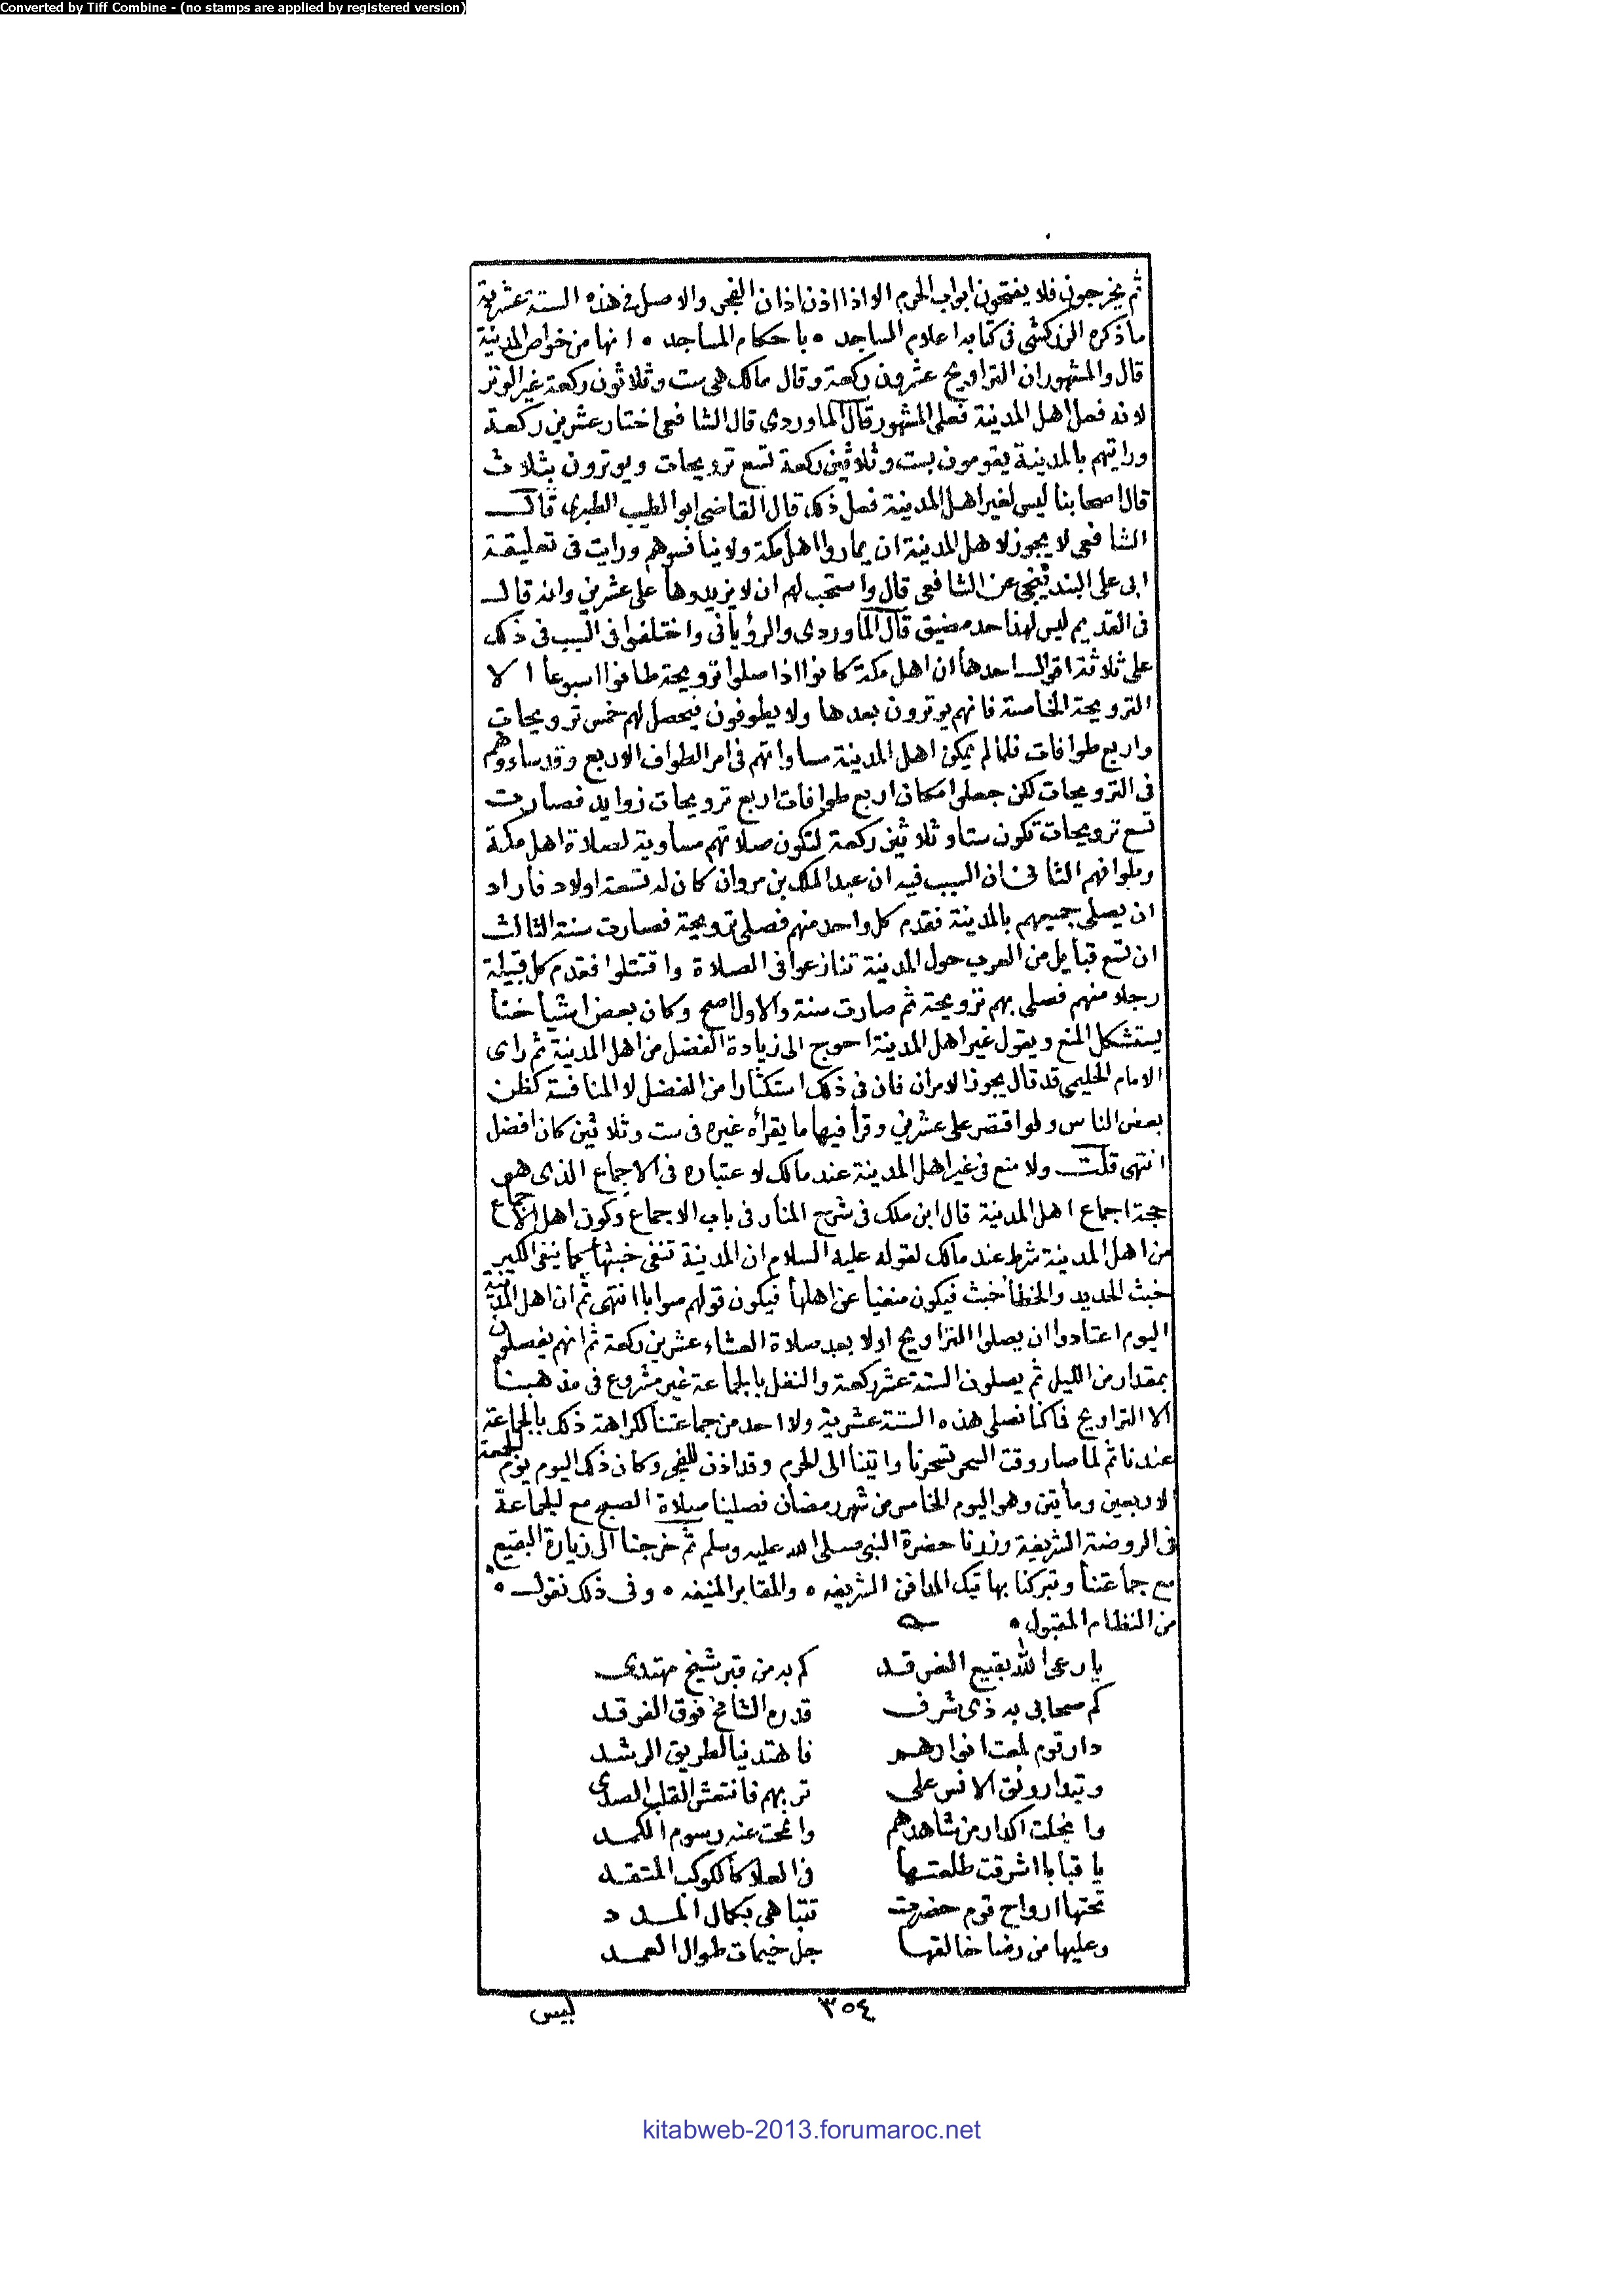 Converted by Tiff Combine - (no stamps are applied by registered version)
ثم يخرجون فلا يفتحون ابواب الحرم الا اذا اذن اذان الفجر والاصل في هذه الستة عشرية
ما ذكره الزركشي في كتابه اعلام الساجد • باحكام المساجد • انها من خواص المدينة
قال والمشهور ان التراويح عشرون ركعة وقال مالك هي ست وثلاثون ركعة غير الوتر
لانه فعل اهل المدينة فعلى المشهور قال الماوردى قال الشافعي اختار عشرين ركعة
ورايتهم بالمدينة يقومون بست وثلاثين ركعة تسع ترويحات ويوترون بثلاث
قال اصحابنا ليس لغير اهل المدينة فعل ذلك قال القاضي ابو الطيب الطبرى قال
الشافعي لا يجوز لاهل المدينة ان يماروا اهل مكة ولا ينافسوهم ورايت في تعليقة
ابى على البندنيجي عن الشافعي قال واستحب لهم ان لا يزيدوها على عشرين وانه قال
في القديم ليس لهذا حد مضيق قال الماوردى والرؤياني واختلفوا في السبب في ذلك
على ثلاثة اقوال احدها ان اهل مكة كانوا اذا صلوا ترويحة طافوا اسبوعا الا
الترويحة الخامسة فانهم يوترون بعدها ولا يطوفون فيحصل لهم خمس ترويحات
واربع طوافات فلما لم يمكن اهل المدينة مساواتهم في امر الطواف الاربع وقد ساووهم
في الترويحات لكن جعلوا مكان اربع طوافات اربع ترويحات زوايد فصارت
تسع ترويحات تكون ستا وثلاثين ركعة لتكون صلاتهم مساوية لصلاة اهل مكة
وطوافهم الثاني ان السبب فيه ان عبد الملك بن مروان كان له تسعة اولاد فأراد
ان يصلى جميعهم بالمدينة فقدم كل واحد منهم فصلى ترويحة فصارت سنة الثالث
ان تسع قبايل من العرب حول المدينة تنازعوا في الصلاة واقتتلوا فقدم كل قبيلة
رجلا منهم فصلى بهم ترويحة ثم صارت سنة والاول اصح وكان بعض اشياخنا
يستشكل المنع ويقول غير اهل المدينة احوج الى زيادة الفضل من اهل المدينة ثم راى
الامام الحليمي قد قال يجوز الامران فان في ذلك استكثارا من الفضل لا المنافسة كظن
بعض الناس ولو اقتصر على عشرين وقرأ فيها ما يقرأه غيره في ست وثلاثين كان افضل
انتهى قلت ولا منع في غير اهل المدينة عند مالك لاعتباره في الاجماع الذى هو
حجة اجماع اهل المدينة قال ابن ملك في شرح المنار في باب الاجماع وكون اهل الاجماع
من اهل المدينة شرط عند مالك لقوله عليه السلام ان المدينة تنفى خبثها كما ينفى الكير
خبث الحديد والخطأ خبث فيكون منفيا عن اهلها فيكون قولهم صوابا انتهى ثم ان اهل المدينة
اليوم اعتادوا ان يصلوا التراويح اولا بعد صلاة العشاء عشرين ركعة ثم انهم يفصلون
بمقدار من الليل ثم يصلون الستة عشر ركعة والنفل بالجماعة غير مشروع في مذهبنا
الا التراويح فاكنا نصلى هذه الستة عشرية ولا احد من جماعتنا لكراهة ذلك بالجماعة
عندنا ثم لما صار وقت السحر تسحرنا واتينا الى الحرم وقد اذن للفجر وكان ذلك اليوم يوم الجمعة
الاربعين ومأيتين وهو اليوم الخامس من شهر رمضان فصلينا صلاة الصبح مع الجماعة
في الروضة الشريفة وزرنا حضرة النبي صلى الله عليه وسلم ثم خرجنا الى زيارة البقيع
مع جماعتنا وتبركنا بهاتيك المدافن الشريفه • والمقابر المنيفه • وفى ذلك نقول •
من النظام المقبول •
يا رعى الله بقيع الغرقد كم به من قبر شيخ مهتدى
كم صحابي به ذى شرف قدره الشامخ فوق الفرقد
دار قوم لمعت انوارهم فاهتدينا لطريق الرشد
وتبدا رونق الانس على تربهم فانتعش القلب الصدى
وانجلت اكدار من شاهدهم وانمحت عنه رسوم الكمد
يا قبابا اشرقت طلعتها في العلا كالكوكب المتقد
تحتها ارواح قوم حضرت تتباهى بكمال المدد
وعليها من رضا خالقها جل خيمات طوال العمد
٣٥٤
ليس
kitabweb-2013.forumaroc.net